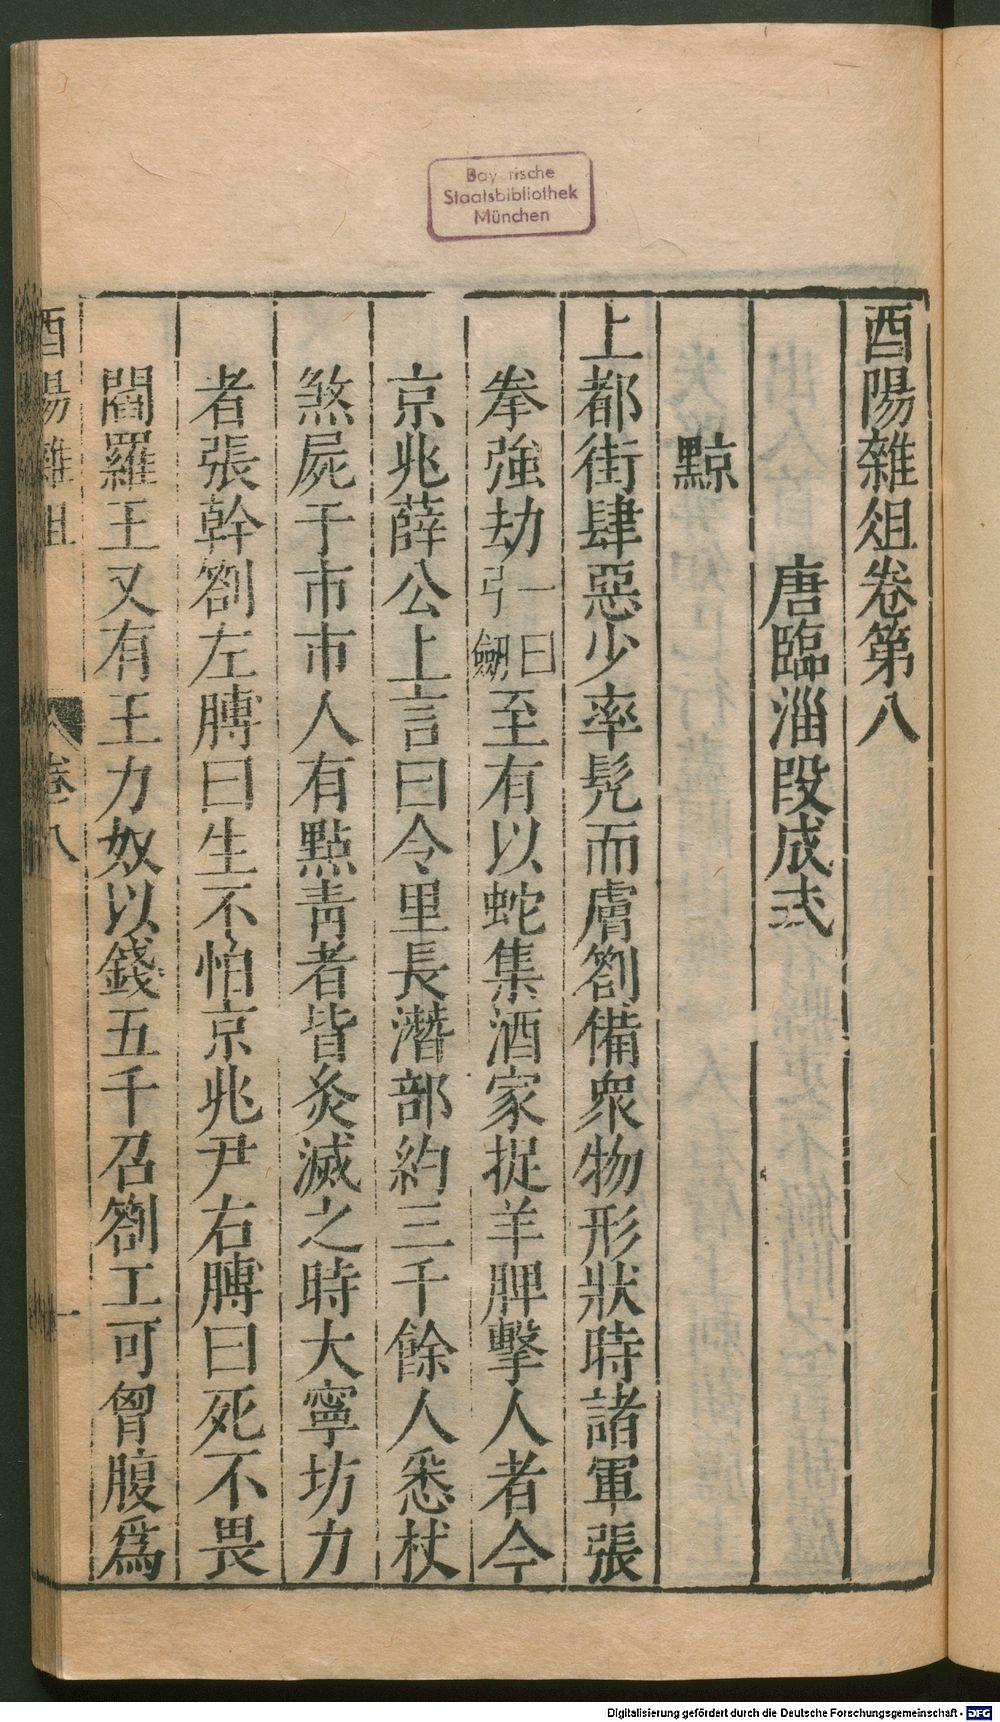 Bayerische
Staatsbibliothek
München
酉陽雜俎卷第八
唐臨淄段成式
黥
上都街肆惡少率髡而膚劄備衆物形狀時諸軍張
拳強劫一曰引劔至有以蛇集酒家捉羊胛擊人者今
京兆薛公上言曰令里長潛部約三千餘人悉杖
煞屍于市市人有點青者皆炙滅之時大寧坊力
者張幹劄左膊曰生不怕京兆尹右膊曰死不畏
閻羅王又有王力奴以錢五千召劄工可胷腹爲
酉陽雜俎 卷八 一
Digitalisierung gefördert durch die Deutsche Forschungsgemeinschaft - DFG